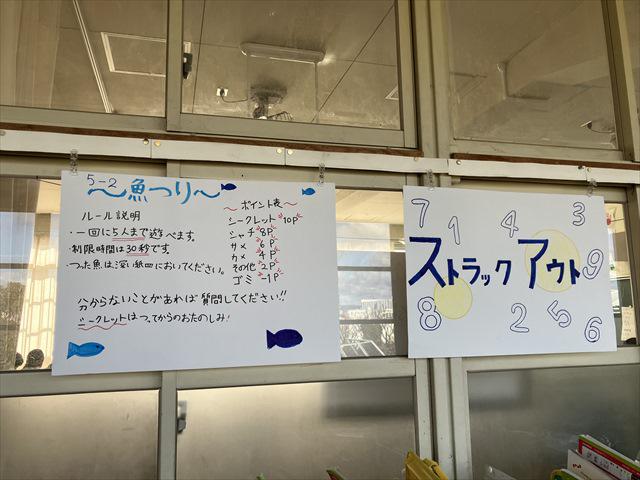 5-2
〜魚つり〜
ルール説明
・一回に5人まで遊べます。
・制限時間は30秒です
・つった魚は深い紙皿においてください。
分からないことがあれば質問してください!!
シークレットはつってからのおたのしみ!
〜ポイント表〜
シークレット 10P
シャチ 8P
サメ 6P
カメ 4P
その他 2P
ゴミ -1P
7 1 4 3
ストラックアウト
9
8 2 5 6